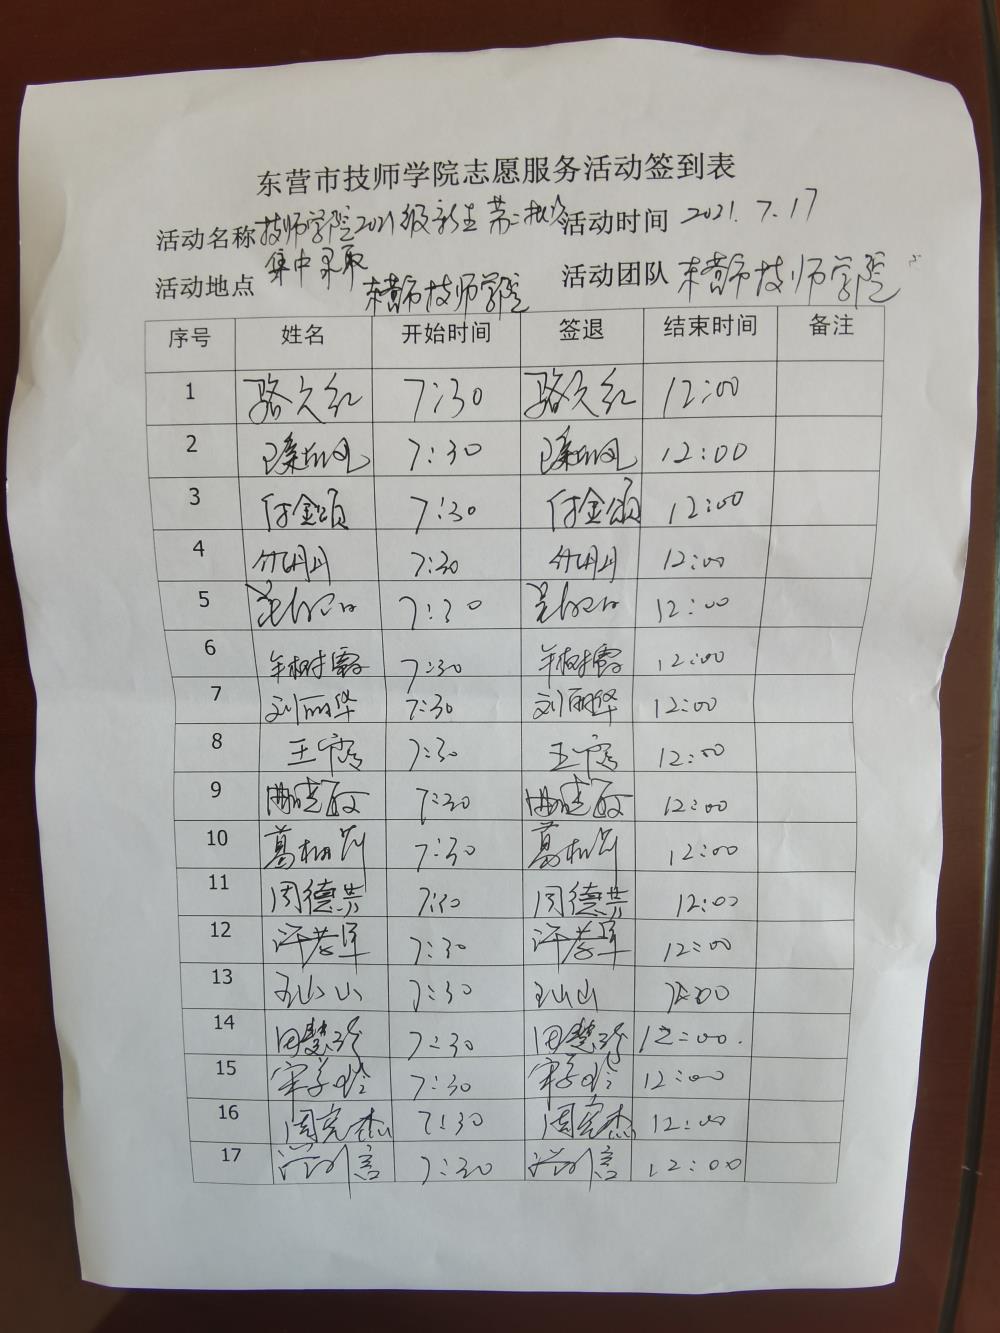 东营市技师学院志愿服务活动签到表
活动名称 技师学院2021级新生第二批次 活动时间 2021.7.17
集中录取
活动地点 东营市技师学院 活动团队 东营市技师学院
序号 姓名 开始时间 签退 结束时间 备注
1 骆久红 7:30 骆久红 12:00
2 7:30 12:00
3 付金颂 7:30 付金颂 12:00
4 7:30 12:00
5 7:30 12:00
6 牟树霞 7:30 牟树霞 12:00
7 刘丽华 7:30 刘丽华 12:00
8 王 7:30 王 12:00
9 曲晓敏 7:30 曲晓敏 12:00
10 葛 7:30 葛 12:00
11 周德芸 7:30 周德芸 12:00
12 许孝军 7:30 许孝军 12:00
13 王山山 7:30 王山山 12:00
14 田慧玲 7:30 田慧玲 12:00
15 宋 7:30 宋 12:00
16 周宪杰 7:30 周宪杰 12:00
17 7:30 12:00